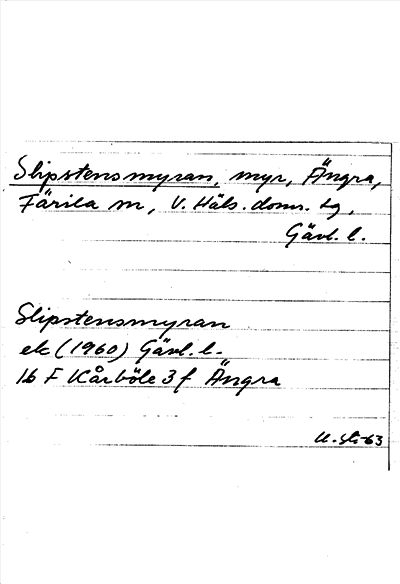 Slipstensmyran, myr, Ängra,
Färila sn, V. Häls. doms. tg,
Gävl. l.
Slipstensmyran
ek (1960) Gävl. l.
16 F Kårböle 3 f Ängra